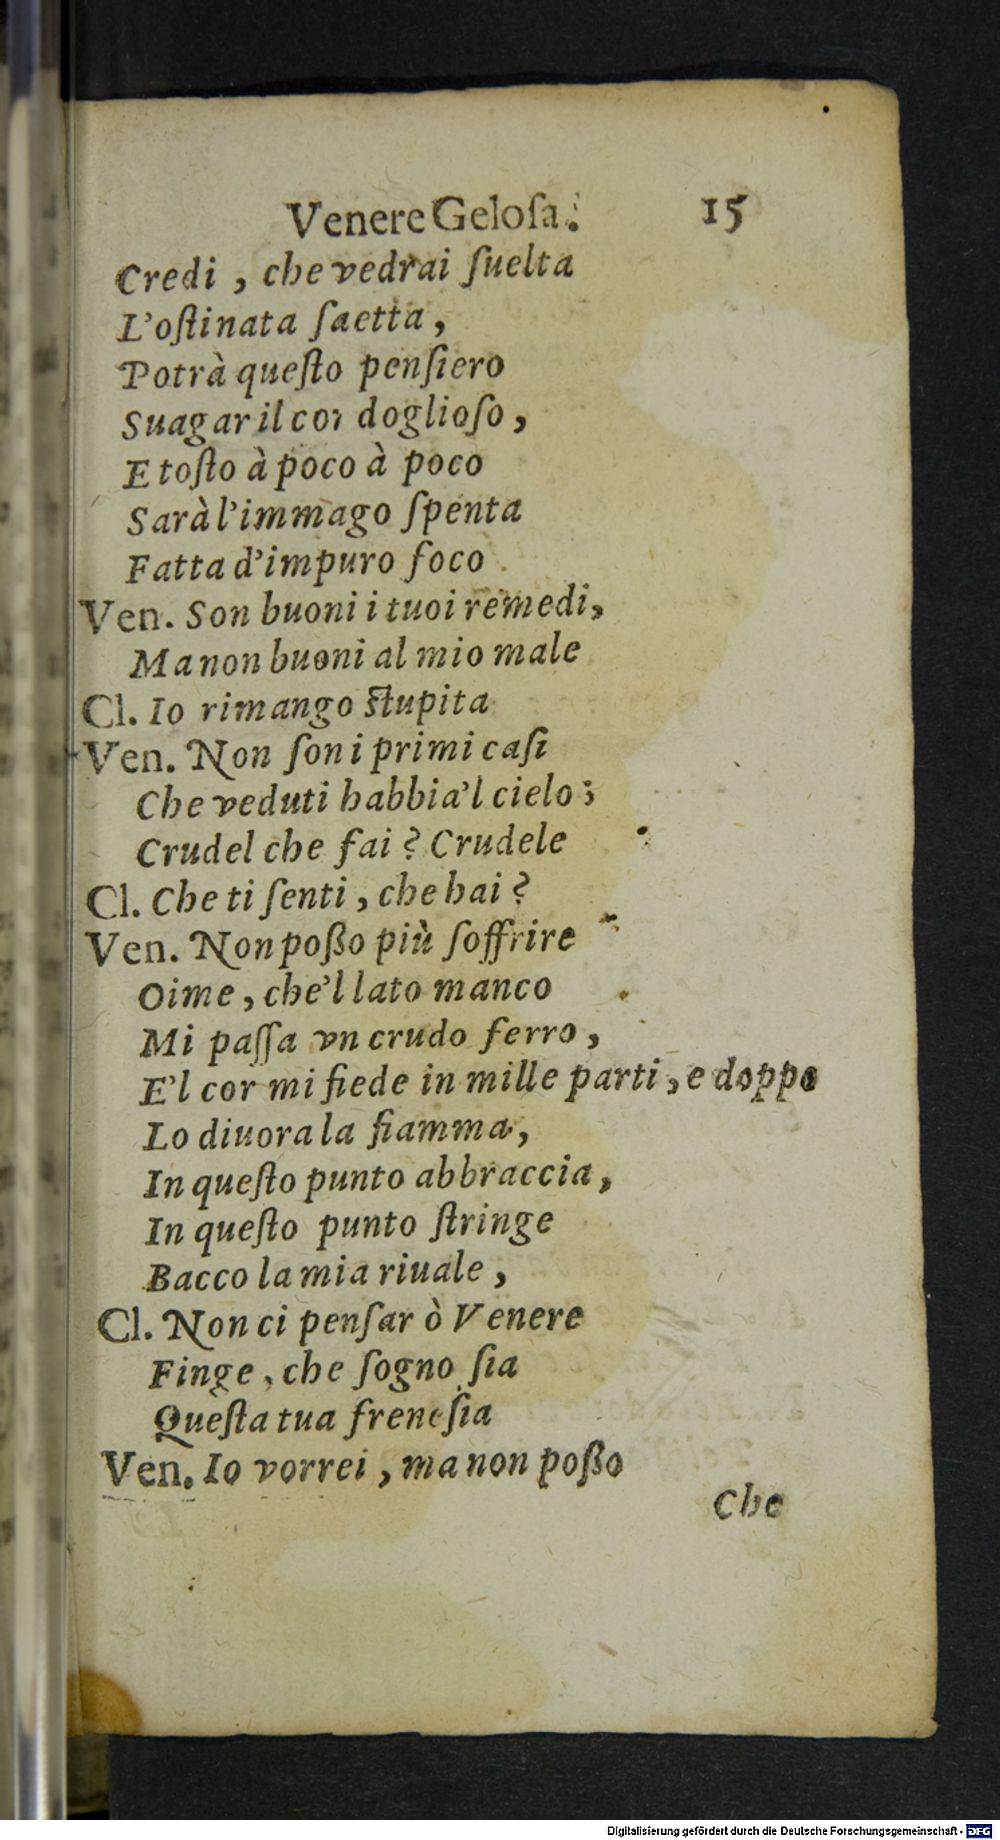 Venere Geloſa. 15
Credi , che vedrai ſuelta
L'oſtinata ſaetta ,
Potrà queſto penſiero
Suagar il cor doglioſo ,
E toſto à poco à poco
Sarà l'immago ſpenta
Fatta d'impuro foco .
Ven. Son buoni i tuoi remedi,
Ma non buoni al mio male
Cl. Io rimango ſtupita
Ven. Non ſon i primi caſi
Che veduti habbia'l cielo ;
Crudel che fai ? Crudele
Cl. Che ti ſenti , che hai ?
Ven. Non poßo più ſoffrire
Oime , che'l lato manco
Mi paſſa vn crudo ferro ,
E'l cor mi fiede in mille parti , e doppo
Lo diuora la fiamma ,
In queſto punto abbraccia ,
In queſto punto ſtringe
Bacco la mia riuale ,
Cl. Non ci penſar ò Venere
Finge , che ſogno ſia
Queſta tua freneſia
Ven. Io vorrei , ma non poßo
Che
Digitalisierung gefördert durch die Deutsche Forschungsgemeinschaft - DFG